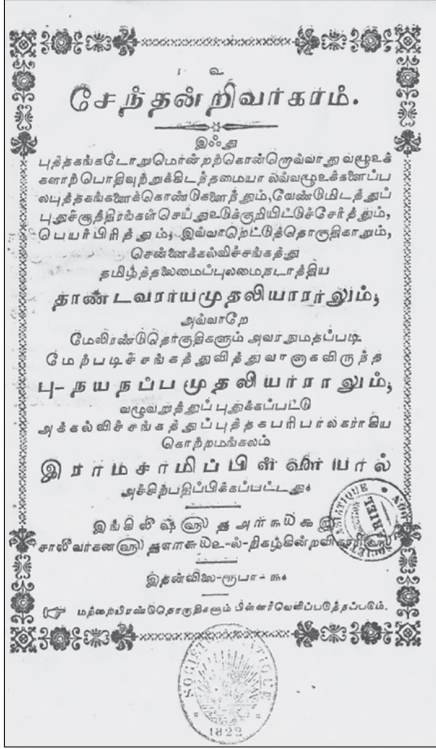 உ
சேந்தன் றிவாகரம்.
இஃது
புத்தகங்கடோறுமொன்றற்கொன்றொவ்வாது வழூஉக்
களாற்பொதிவுற்றுக்கிடந்தமையால்வ்வழூஉக்களைப்ப
லபுத்தகங்களைக்கொண்டுகளைந்தும், வேண்டுமிடத்துப்
புதுச்சூத்திரங்கள்செய்துஉடுக்குறியிட்டுச்சேர்த்தும்,
பெயர்பிரித்தும், இவ்வாறெட்டுத்தொகுதிகாறும்,
சென்னைக்கல்விச்சங்கத்து
தமிழ்த்தலைமைப்புலமைநடாத்திய
தாண்டவராயமுதலியாராலும்,
அவ்வாறே
மேலிரண்டுதொகுதிகளும் அவரநுமதப்படி
மேற்படிச்சங்கத்துவித்துவானாகவிருந்த
பு-நயநப்பமுதலியாராலும்,
வழுவறுத்துப்புதுக்கப்பட்டு
அக்கல்விச்சங்கத்துப்புத்தகபரிபாலகராகிய
கொற்றமங்கலம்
இராமசாமிப்பிள்ளையால்
அச்சிற்பதிப்பிக்கப்பட்டது.
இங்கிலீஷ்
சாலிவாகன உ-ல்-நிகழ்கின்ற
இதன்விலை-ரூபா-௩.
☞ மற்றையிரண்டுதொகுதிகளும் பின்னர்வெளிப்படுத்தப்படும்.
SOCIETE ASIATIQUE
1822